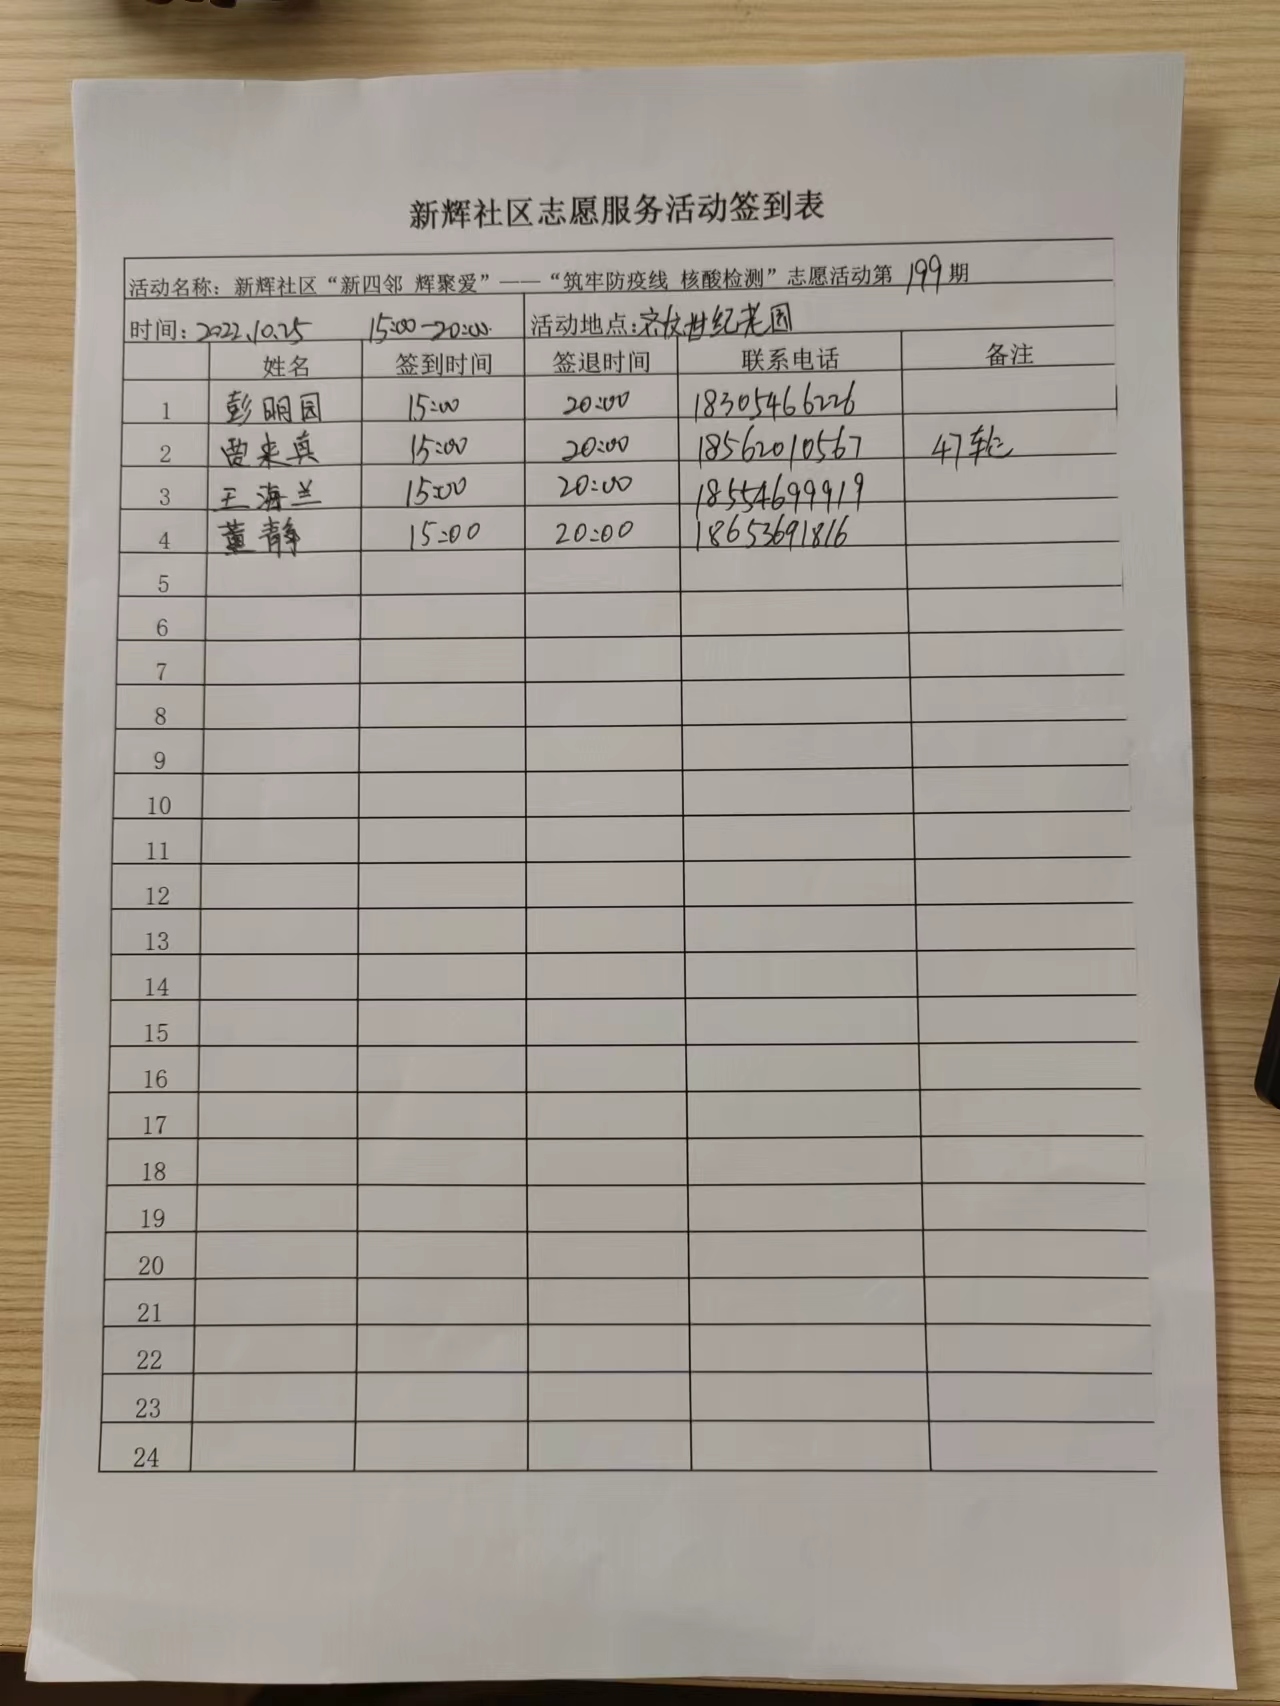 新辉社区志愿服务活动签到表
活动名称：新辉社区“新四邻 辉聚爱”——“筑牢防疫线 核酸检测”志愿活动第199期
时间：2022.10.25 15:00-20:00. 活动地点：世纪花园
姓名 签到时间 签退时间 联系电话 备注
1 彭明园 15:00 20:00 18305466226
2 贾来真 15:00 20:00 18562010567 47车位
3 王海兰 15:00 20:00 18554699919
4 董静 15:00 20:00 18653691816
5
6
7
8
9
10
11
12
13
14
15
16
17
18
19
20
21
22
23
24